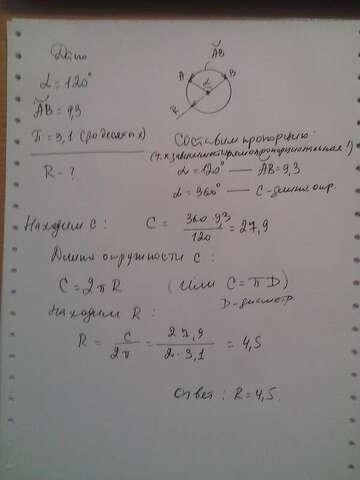 Дано
α = 120°
AB = 9,3
π = 3,1 (до десятых)
R - ?
AB
A
B
α
R
Составим пропорцию:
(т.к. зависимость прямопропорциональная!)
α = 120° — AB = 9,3
α = 360° — C - длина окр.
Находим C: C = 360 · 9,3 / 120 = 27,9
Длина окружности C:
C = 2πR (или C = πD)
D - диаметр.
Находим R:
R = C / 2π = 27,9 / 2 · 3,1 = 4,5
Ответ: R = 4,5.